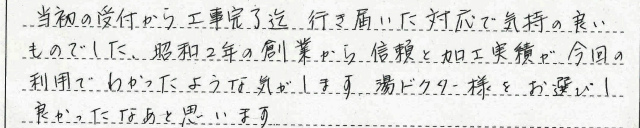 当初の受付から工事完了迄 行き届いた対応で気持の良い
ものでした、昭和2年の創業から信頼と加工実績が今回の
利用でわかったような気がします。湯ドクター様をお選びし
良かったなあと思います